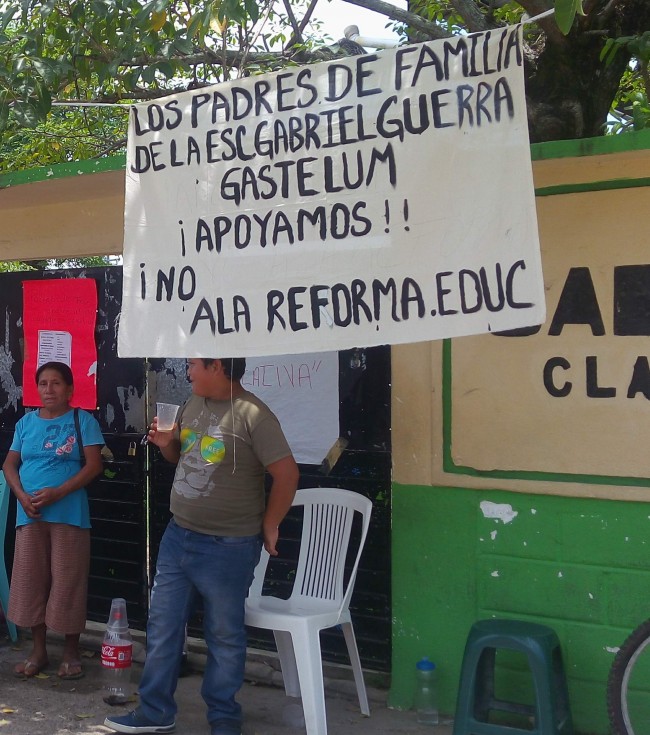 LOS PADRES.DE FAMILIA
DE LA ESC.GABRIEL GUERRA
GASTELUM
¡APOYAMOS!!
¡NO
ALA REFORMA.EDUC
CLA
Coca-Cola